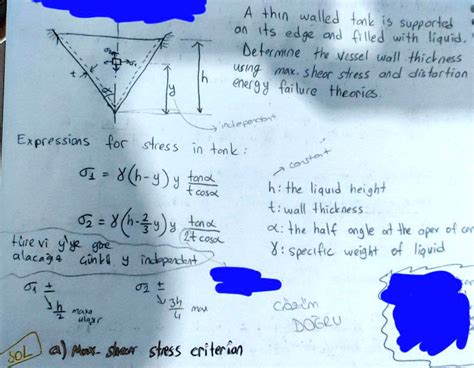 A thin walled tank is supported
on its edge and filled with liquid.
Determine the vessel wall thickness
using max. shear stress and distortion
energy failure theories.
t
α
y
h
independent
Expressions for stress in tank:
constant
σ1 = γ(h-y) y tanα / t cosα
h: the liquid height
t: wall thickness
σ2 = γ(h-2/3 y) y tanα / 2t cosα
α: the half angle at the aper of
γ: specific weight of liquid
türevi y'ye göre
alacağız çünkü y independent
σ1 ±
h/2
σ2 ±
3h/4 max
Çözüm
DOĞRU
SOL
a) Max. shear stress criterian